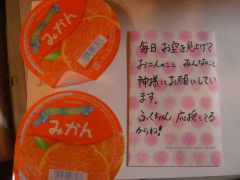 みかん
みかん
毎日、お空を見上げて
お二人のこと、みんなのこと
神様にお願いしてい
ます。
ふくちゃん 応援してる
からね!